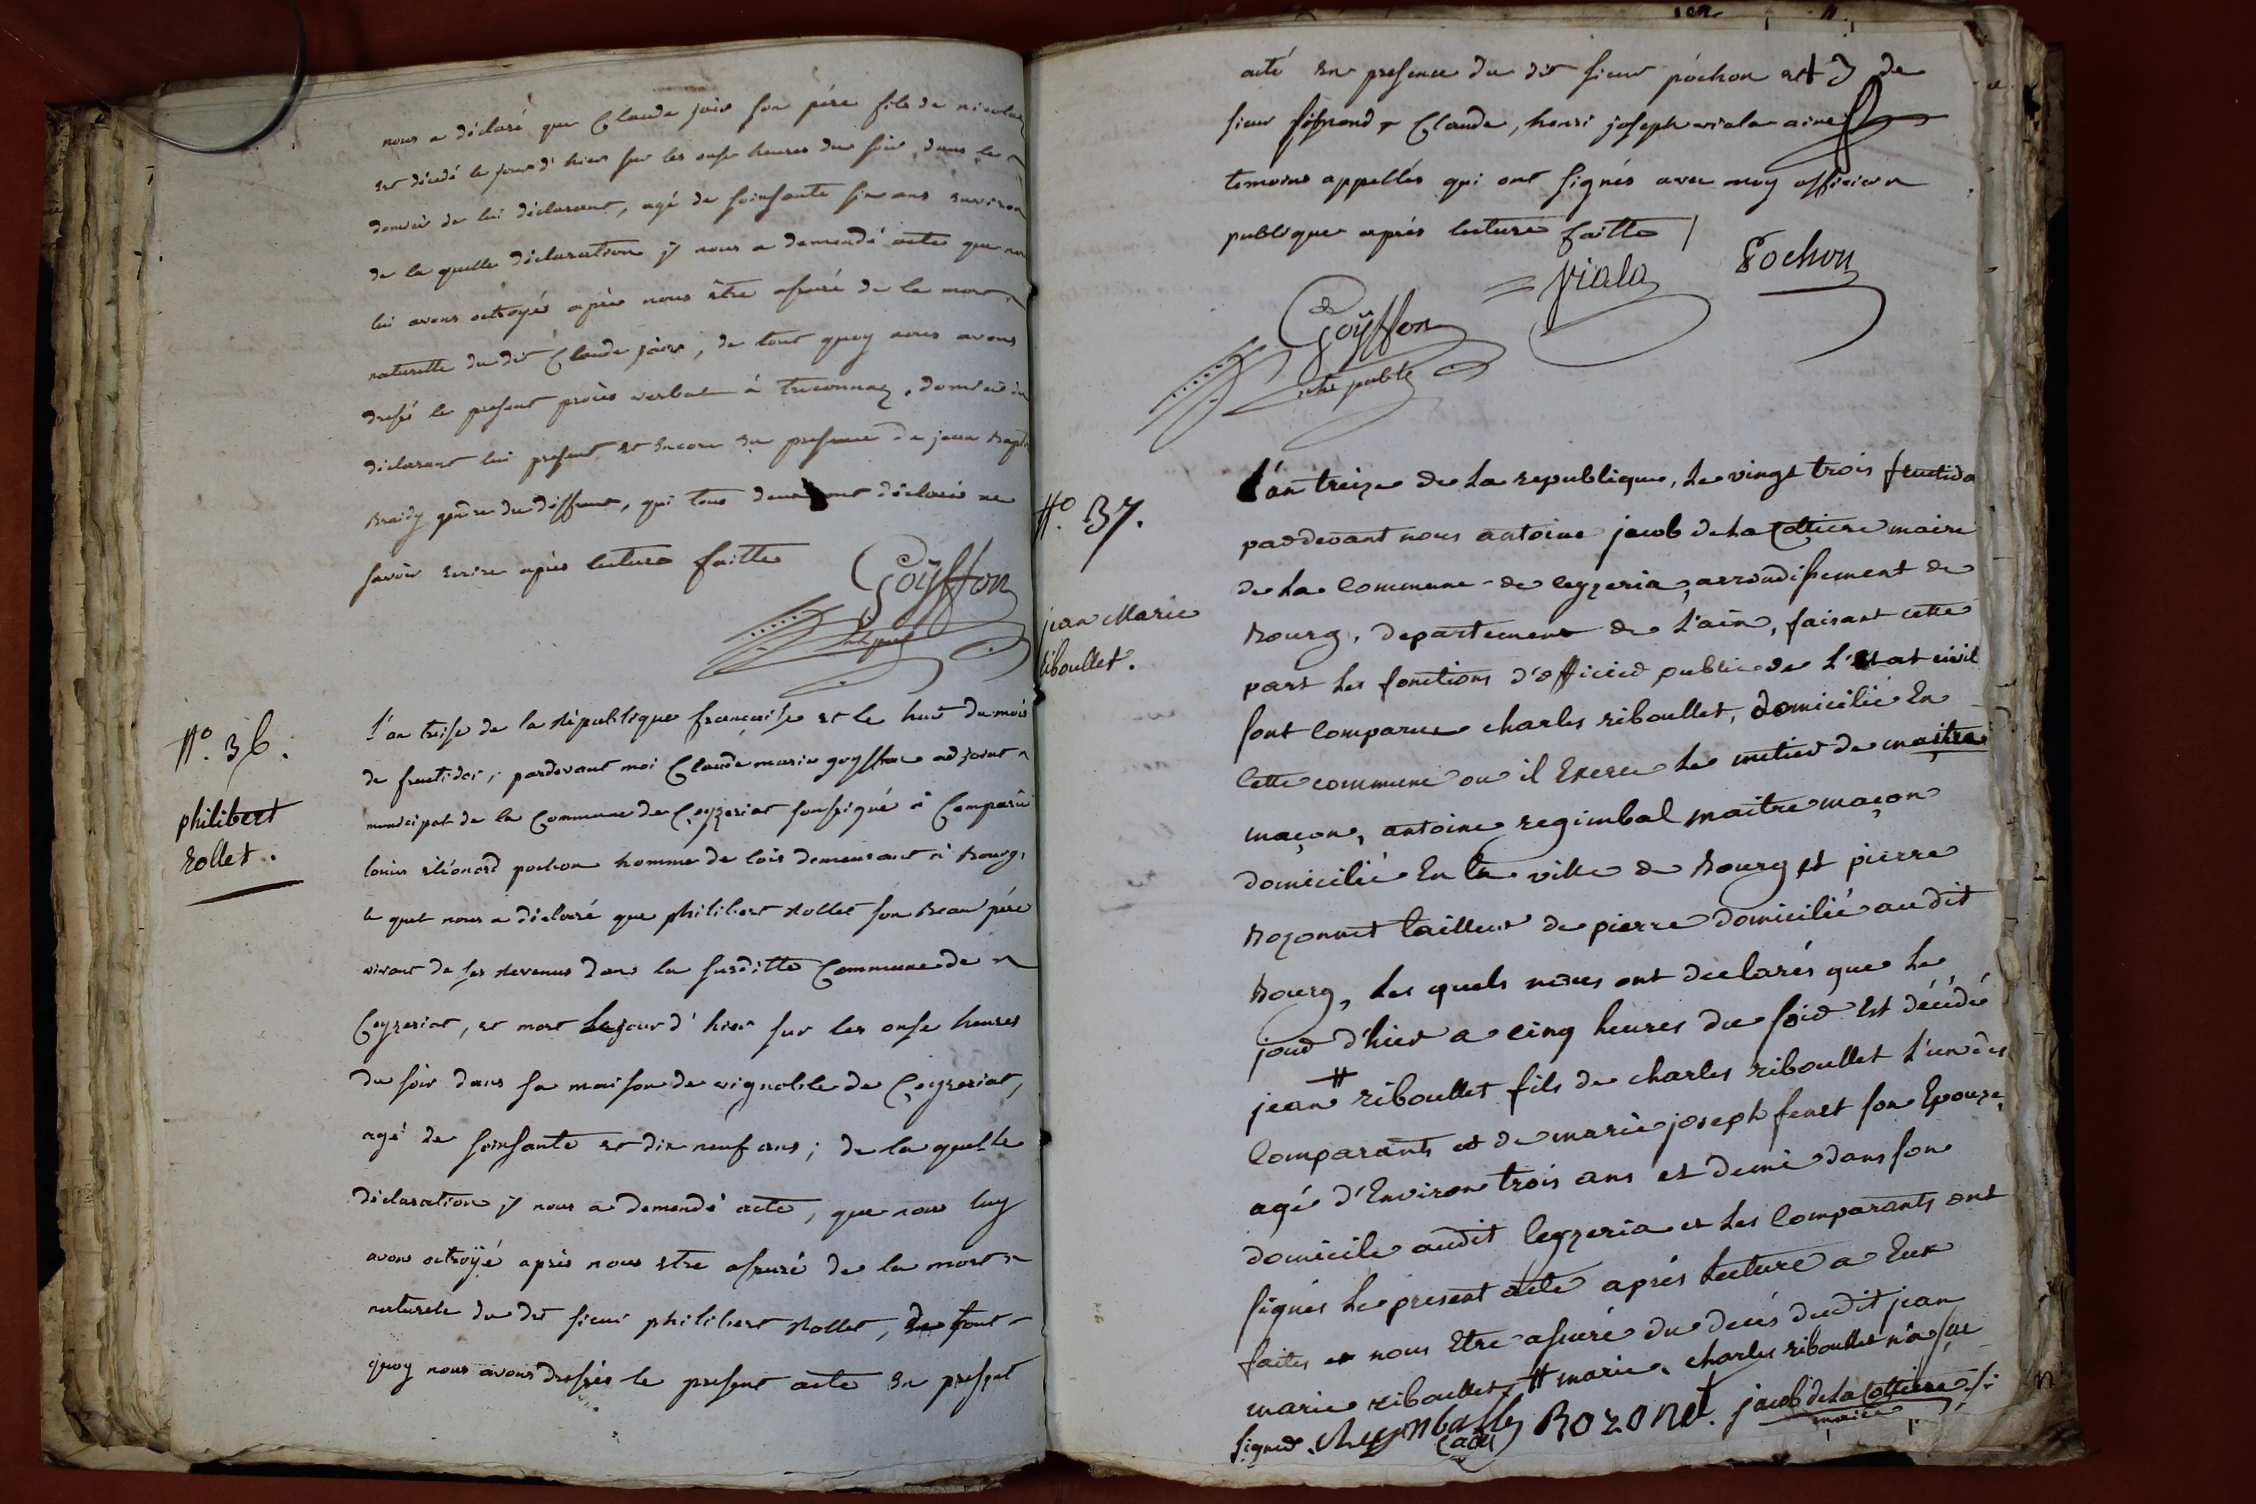 nous a déclaré que Claude jair son pére fils de nicolas
est décédé le jour d'hier sur les onse heures du soir, dans le
domicil de lui déclarant, agé de soinsante six ans environ
de la quelle déclaration y nous a demendé acte que nous
lui avons octroyés aprés nous être assuré de la mort
naturelle du dit Claude jair, de tout quoy nous avons
dressé le present procès verbal à treconnaz, domicil du
déclarant lui present et encore en presence de jean Bapt
Braidy gendre du deffunt, qui tous deux ont déclarés ne
savoir ecrire aprés lecture faitte
Goÿffon
N.° 36.
philibert
Rollet.
L'an treise de la République française et le huit du mois
de fructidor, pardevant moi Claude marie goyffon adjoint
municipal de la Commune de Ceyzeriat soussigné a Comparu
louis eléonord pochon homme de lois demeurant à Bourg,
le quel nous a déclaré que philibert Rollet son Beau pére
vivant de ses Revenus dans la susditte Commune de
Ceyzeriat, et mort le jour d'hier sur les onse heures
du soir dans sa maison de vignoble de Ceyzeriat,
agé de soinsante et dix neuf ans; de la quelle
déclaration y nous a demendé acte, que nous luy
avons octroÿé aprés nous etre assuré de la mort
naturele du dit sieur philibert Rollet, de tout
quoy nous avons dressés le present acte en présent
acté en presence du dit sieur póchon et de
sieur sifrend Claude, henri joseph viala ainé
temoins appellés qui ont signés avec moy officier
publique aprés lecture faitte
Goÿffon
Viala
Pochon
N.° 37.
jean Marie
riboullet.
L'an treize de la republique, le vingt trois fructido
pardevant nous antoine jacob de la Cottiere maire
de la Commune de ceyzeria, arrondissement de
Bourg, departement de l'ain, faisant cette
part les fonctions d'officier public de l'Etat civil
sont comparus charles riboullet, domicilié En
cette commune ou il Exerce le metier de maitre
maçon, antoine regimbal maitre maçon
domicilié En la ville de Bourg et pierre
Bozonnet tailleur de pierre domicilié audit
Bourg, les quels nous ont declarés que le
jour d'hier a cinq heures du soir Est décédé
jean # riboullet fils de charles riboullet l'un des
comparants et de marie joseph feret son Epouze,
agé d'Environ trois ans et demi dans son
domicile audit ceyzeria et les comparants ont
signés le present acte aprés lecture a Eux
faites et nous Etre assuré du decés dudit jean
marie riboullet, # marie, charles riboullet n'a sus
signer. Rozonet. jacob de la Cottiere
maire